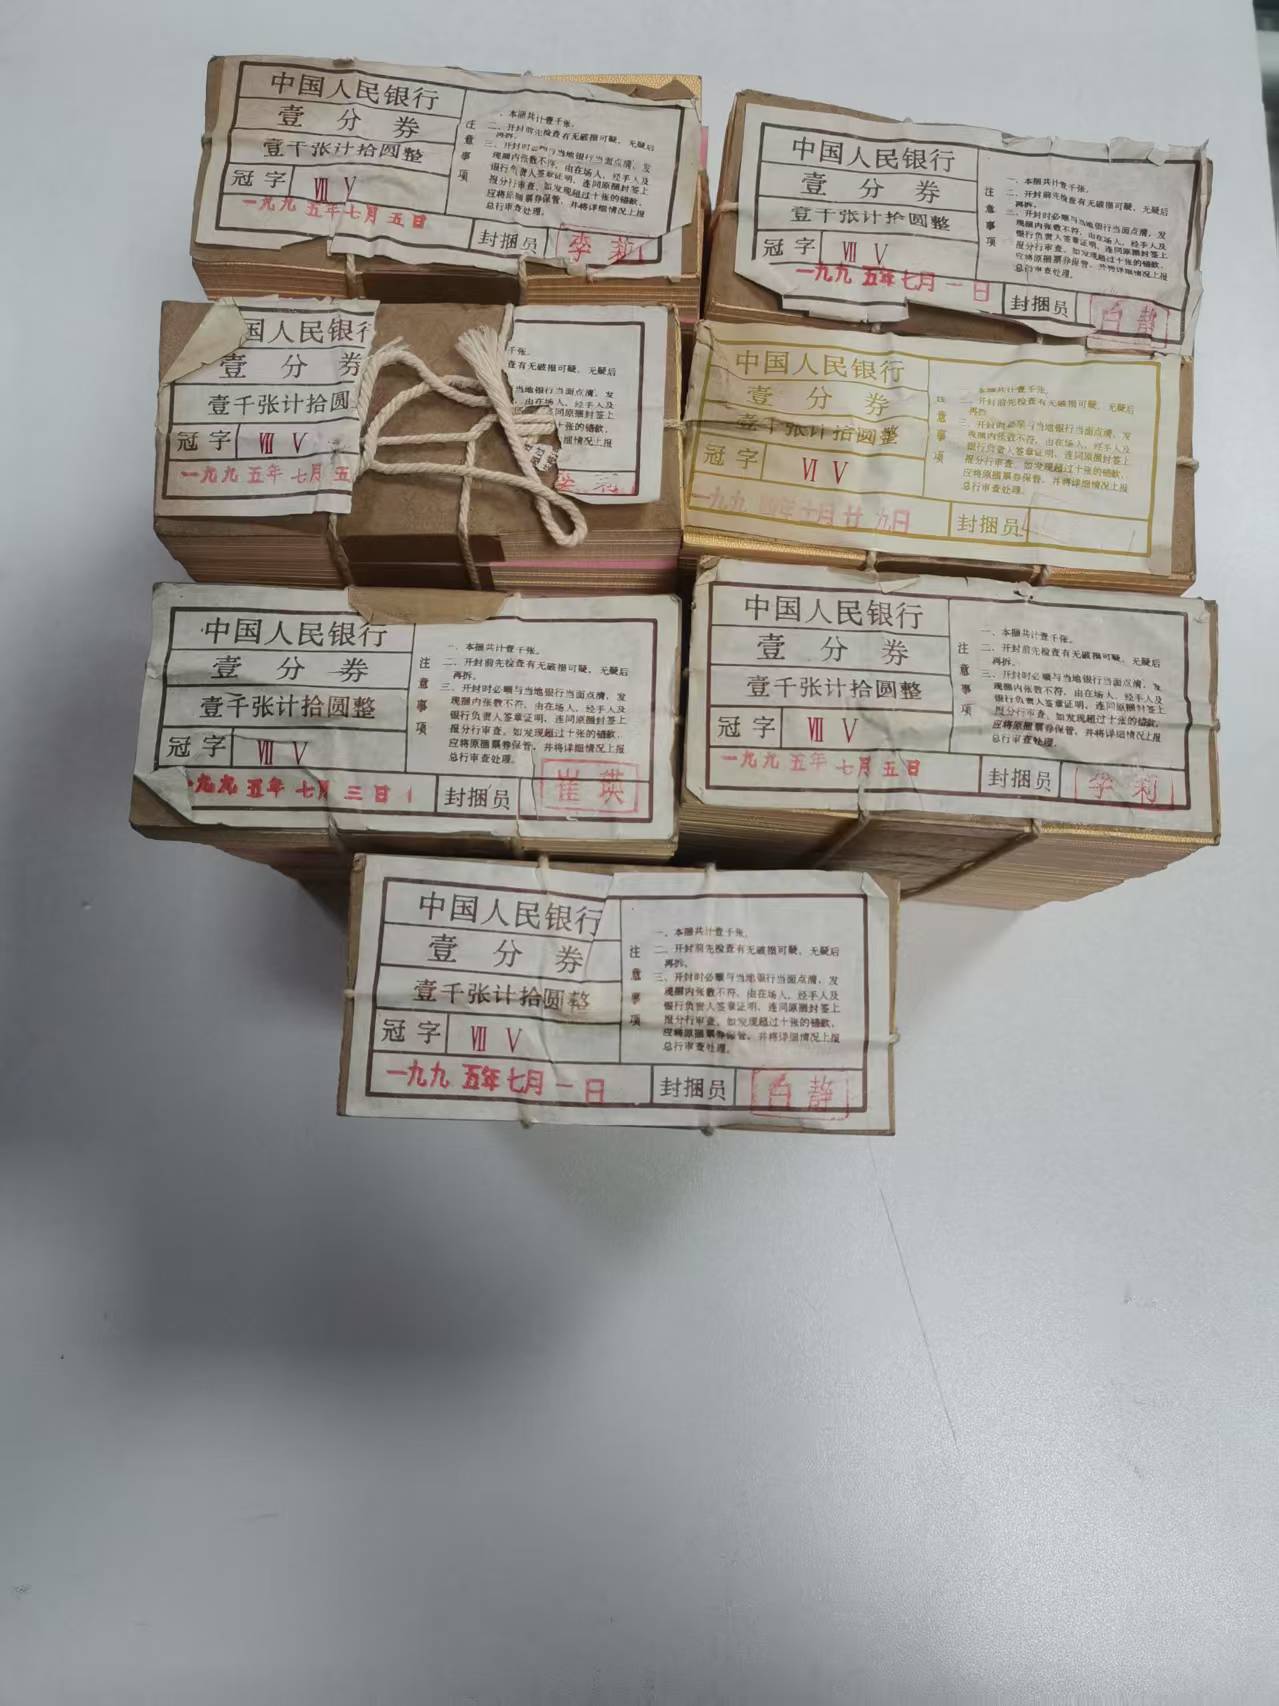 中国人民银行
壹分券
壹千张计拾圆整
冠字 Ⅶ Ⅴ
一九九五年七月五日
注意事项
一、本捆共计壹千张。
二、开封前先检查有无破损可疑、无疑后
再拆。
三、开封时必须与当地银行当面点清，发
现捆内张数不符，由在场人、经手人及
银行负责人签章证明，连同原捆封签上
报分行审查。如发现超过十张的错款，
应将原捆票券保管，并将详细情况上报
总行审查处理。
封捆员 李莉
中国人民银行
壹分券
壹千张计拾圆整
冠字 Ⅶ Ⅴ
一九九五年七月一日
注意事项
一、本捆共计壹千张。
二、开封前先检查有无破损可疑、无疑后
再拆。
三、开封时必须与当地银行当面点清，发
现捆内张数不符，由在场人、经手人及
银行负责人签章证明，连同原捆封签上
报分行审查。如发现超过十张的错款，
应将原捆票券保管，并将详细情况上报
总行审查处理。
封捆员 白静
国人民银行
壹分券
壹千张计拾圆
冠字 Ⅶ Ⅴ
一九九五年七月五
千张。
查有无破损可疑、无疑后
当地银行当面点清，发
，由在场人、经手人及
同原捆封签上
十张的错款，
细情况上报
李莉
中国人民银行
壹分券
壹千张计拾圆整
冠字 Ⅵ Ⅴ
一九九四年十月廿九日
注意事项
一、本捆共计壹千张。
二、开封前先检查有无破损可疑、无疑后
再拆。
三、开封时必须与当地银行当面点清，发
现捆内张数不符，由在场人、经手人及
银行负责人签章证明，连同原捆封签上
报分行审查。如发现超过十张的错款，
应将原捆票券保管，并将详细情况上报
总行审查处理。
封捆员
中国人民银行
壹分券
壹千张计拾圆整
冠字 Ⅶ Ⅴ
一九九五年七月三日
注意事项
一、本捆共计壹千张。
二、开封前先检查有无破损可疑、无疑后
再拆。
三、开封时必须与当地银行当面点清，发
现捆内张数不符，由在场人、经手人及
银行负责人签章证明，连同原捆封签上
报分行审查。如发现超过十张的错款，
应将原捆票券保管，并将详细情况上报
总行审查处理。
封捆员 崔瑛
中国人民银行
壹分券
壹千张计拾圆整
冠字 Ⅶ Ⅴ
一九九五年七月五日
注意事项
一、本捆共计壹千张。
二、开封前先检查有无破损可疑、无疑后
再拆。
三、开封时必须与当地银行当面点清，发
现捆内张数不符，由在场人、经手人及
银行负责人签章证明，连同原捆封签上
报分行审查。如发现超过十张的错款，
应将原捆票券保管，并将详细情况上报
总行审查处理。
封捆员 李莉
中国人民银行
壹分券
壹千张计拾圆整
冠字 Ⅶ Ⅴ
一九九五年七月一日
注意事项
一、本捆共计壹千张。
二、开封前先检查有无破损可疑、无疑后
再拆。
三、开封时必须与当地银行当面点清，发
现捆内张数不符，由在场人、经手人及
银行负责人签章证明，连同原捆封签上
报分行审查。如发现超过十张的错款，
应将原捆票券保管，并将详细情况上报
总行审查处理。
封捆员 白静